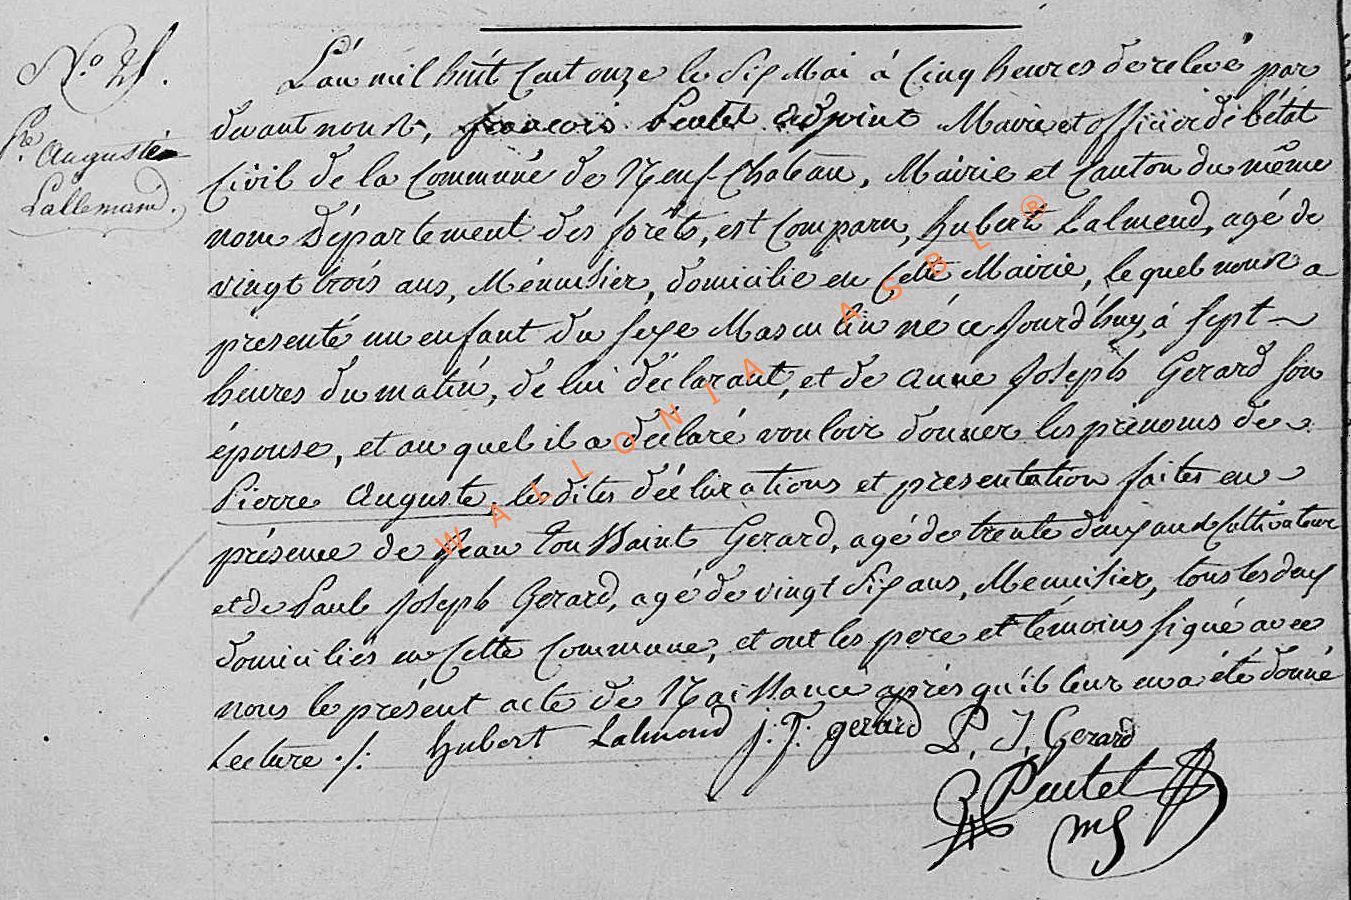 N.o 21.
P.re Auguste
Lallemand.
L'an mil huit Cent onze le Six Mai à Cinq heures de relevé par
devant nous, françois Pentet adjoint Maire et officier de l'état
Civil de la Commune de Neuf-Chateau, Mairie et Canton du même
nom Département des forêts, est Comparu, hubert Lalmend, agé de
vingt trois ans, Ménuisier, domicilié en Cette Mairie, lequel nous a
presenté un enfant du Sexe Masculin né ce Jourd'huy, à Sept
heures du matin, de lui déclarant, et de anne Joseph Gerard Son
épouse, et au quel il a déclaré vouloir donner les prénoms de
Pierre Auguste, les dites déclarations et presentation faites en
présence de Jean Toussaint Gerard, agé de trente deux ans Cultivateur
et de Paul Joseph Gerard, agé de vingt Six ans, Menuisier, tous les deux
domiciliés en Cette Commune, et ont les pere et témoins Signé avec
nous le présent acte de Naissance après qu'il leur en a été donné
Lecture ./.
hubert Lalmend j. T. gerard P. J. Gerard
Pentet
WALLONIA ASBL ®